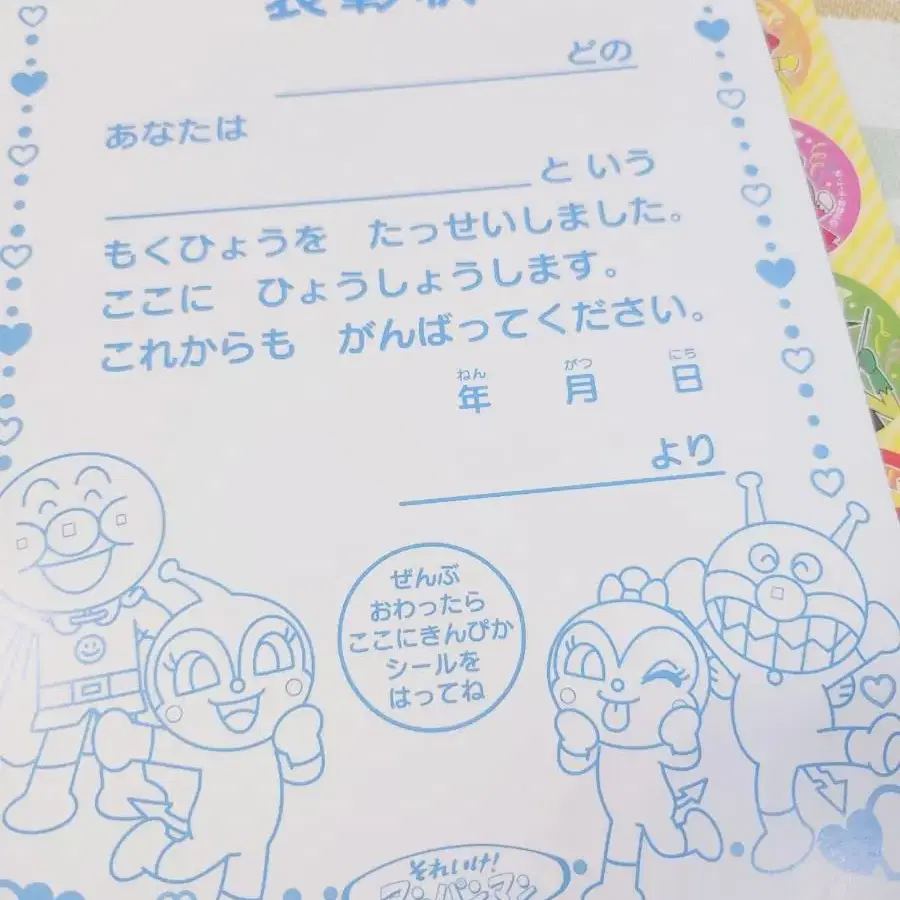 表彰状
どの
あなたは
という
もくひょうを たっせいしました。
ここに ひょうしょうします。
これからも がんばってください。
ねん がつ にち
年 月 日
より
ぜんぶ
おわったら
ここにきんぴか
シールを
はってね
それいけ!
アンパンマン